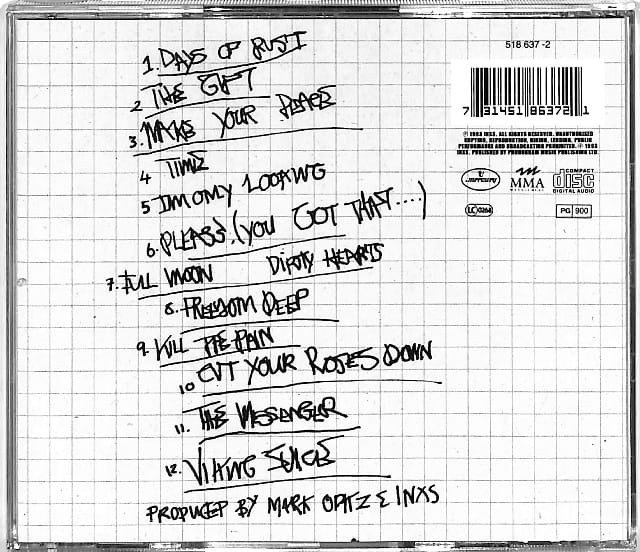 1. DAYS OF RUST
2 THE GIFT
3. MAKE YOUR PEACE
4 TIME
5 I'M ONLY LOOKING
6. PLEASE.(YOU GOT THAT....)
7. FULL MOON DIRTY HEARTS
8. FREEDOM DEEP
9. KILL THE PAIN
10 CUT YOUR ROSES DOWN
11. THE MESSENGER
12. VIKING JUICE
PRODUCED BY MARK OPITZ & INXS
518 637-2
7 31451 86372 1
℗ 1993 INXS. ALL RIGHTS RESERVED. UNAUTHORISED
COPYING, REPRODUCTION, HIRING, LENDING, PUBLIC
PERFORMANCE AND BROADCASTING PROHIBITED. © 1993
INXS. PUBLISHED BY PHONOGRAM MUSIC PUBLISHING LTD.
mercury
MMA
COMPACT
disc
DIGITAL AUDIO
LC 0268
PG 900